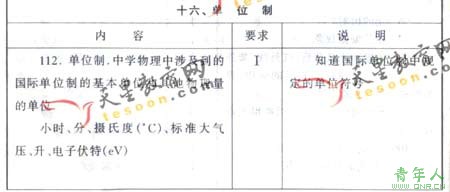 十六、单 位 制
内 容
要求
说 明
112. 单位制. 中学物理中涉及到的
国际单位制的基本单位和其他物理量
的单位
小时、分、摄氏度(℃)、标准大气
压、升、电子伏特(eV)
Ⅰ
知道国际单位制中规
定的单位符号
天星教育网
tesoon.com
天星教育网
tesoon.com
青年人